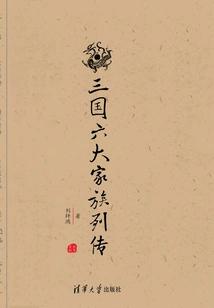 三国六大家族列传
刘轩鸿 著
清华大学出版社